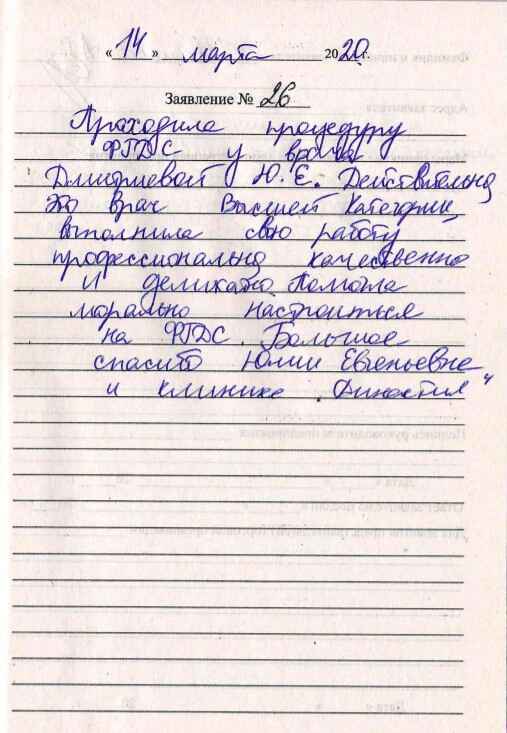 « 14 » марта 2020г.
Заявление № 26
Проходила процедуру
ФГДС у врача
Дмитриевой Ю. Е. Действительно,
это врач Высшей категории,
выполнила свою работу
профессионально, качественно
и деликатно. Помогла
морально настроиться
на ФГДС. Большое
спасибо Юлии Евгеньевне
и клинике "Династия"